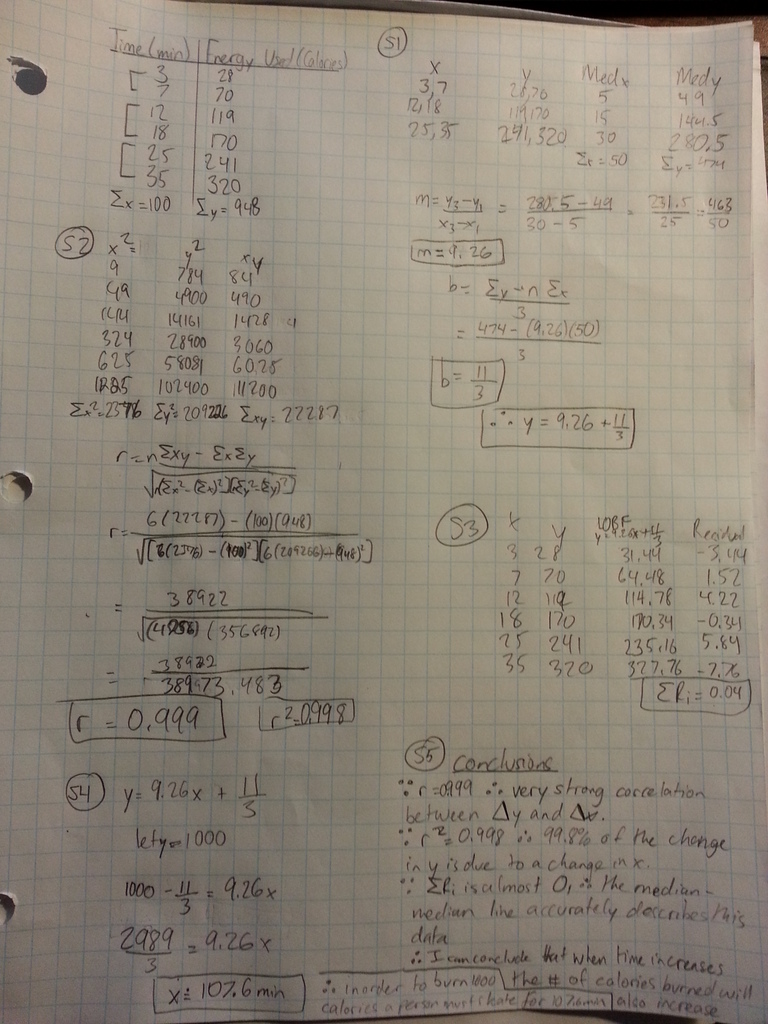 Time (min) | Energy Used (Calories)
3 28
7 70
12 119
18 170
25 241
35 320
Σx = 100 Σy = 948
S1
x y Medx Medy
3,7 28,70 5 49
12,18 119,170 15 144.5
25,35 241,320 30 280.5
Σx = 50 Σy = 474
m = y₃-y₁ / x₃-x₁ = 280.5 - 49 / 30 - 5 = 231.5 / 25 = 463 / 50
m = 9.26
b = Σy - m Σx / 3
= 474 - (9.26)(50) / 3
b = 11/3
∴ y = 9.26 + 11/3
S2
x²= y² xy
9 784 84
49 4900 490
144 14161 1428
324 28900 3060
625 58081 6025
1225 102400 11200
Σx² = 2376 Σy² = 209226 Σxy = 22287
r = nΣxy - ΣxΣy / √[n(Σx² - (Σx)²][nΣy² - (Σy)²]
r = 6(22287) - (100)(948) / √[6(2376) - (100)²][6(209266) - (948)²]
= 38922 / √(4256)(356892)
= 38922 / 38973.483
r = 0.999 r² = 0.998
S3
x y LOBF y=9.26x+11/3 Residual
3 28 31.44 -3.44
7 70 64.48 1.52
12 119 114.78 4.22
18 170 170.34 -0.34
25 241 235.16 5.84
35 320 327.76 -7.76
ΣRi = 0.04
S4
y = 9.26x + 11/3
let y = 1000
1000 - 11/3 = 9.26x
2989/3 = 9.26x
x ≐ 107.6 min
S5 conclusions
∵ r = 0.999 ∴ very strong correlation
between Δy and Δx.
∵ r² = 0.998 ∴ 99.8% of the change
in y is due to a change in x.
∵ ΣRi is almost 0, ∴ the median-
median line accurately describes this
data
∴ I can conclude that when time increases
the # of calories burned will
also increase
∴ in order to burn 1000
calories a person must skate for 107.6 min